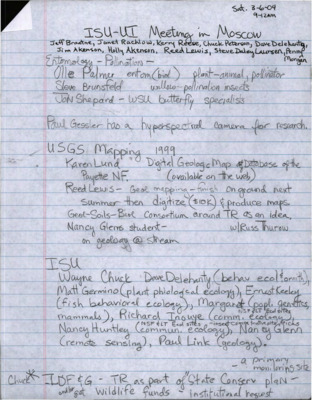 Sat. 3-6-04
9-12am
ISU-UI Meeting in Moscow
Jeff Braatne, Janet Rachlow, Kerry Reese, Chuck Peterson, Dave Delehanty,
Jim Akenson, Holly Akenson, Reed Lewis, Steve Daley Laursen, Penny
Morgan
Entomology - Pollination -
Olle Pellmyr entom (biol) plant-animal, pollinator
Steve Brunsfeld willow-pollination insects
Jon Shepard - WSU butterfly specialist
Paul Gessler has a hyperspectral camera for research
USGS Mapping 1999
Karen Lund Digital Geologic Map & Database of the
Payette NF (available on the web)
Reed Lewis - Geol mapping - on ground next
summer then digitize ($10K) & produce maps
Geol-Soils-Biol Consortium around TR as an idea
Nancy Glenn student - w/Russ Thurow
on geology & stream
ISU
Wayne Chuck Dave Delehanty (behav ecol/ornith),
Matt Germino (plant phsiological ecology), Ernest Keeley
(fish behavioral ecology), Margaret (popl. genetics,
mammals), Richard Inouye (comm. ecology),
Nancy Huntley (commun. ecology), Nancy Glenn
(remote sensing), Paul Link (geology).
- a primary
monitoring site
Chuck* IDF&G - TR as part of "State Conserv plan -
get wildlife funds - institutional request